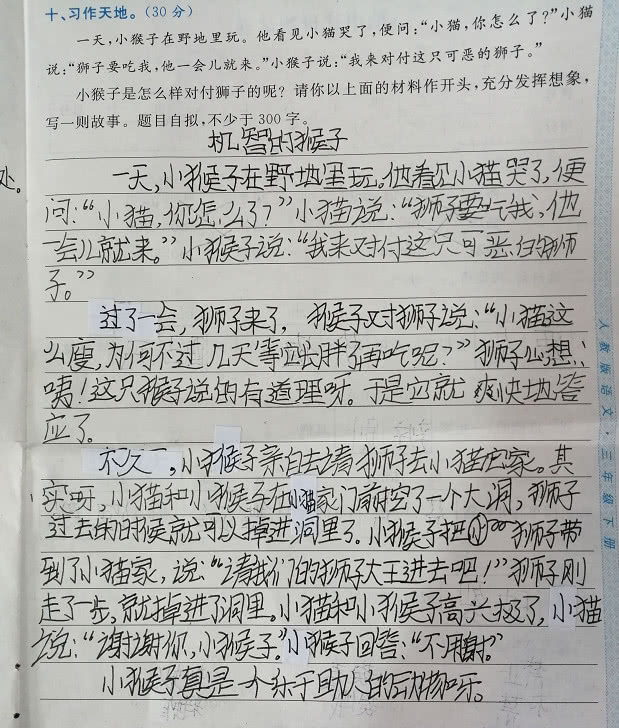 十、习作天地。(30分)
一天,小猴子在野地里玩。他看见小猫哭了,便问:“小猫,你怎么了?”小猫
说:“狮子要吃我,他一会儿就来。”小猴子说:“我来对付这只可恶的狮子。”
小猴子是怎么样对付狮子的呢?请你以上面的材料作开头,充分发挥想象,
写一则故事。题目自拟,不少于300字。
机智的猴子
处。
一天,小猴子在野地里玩。他看见小猫哭了,便
问:“小猫,你怎么了?”小猫说:“狮子要吃我,他
一会儿就来。”小猴子说:“我来对付这只可恶的狮
子。”
过了一会,狮子来了,猴子对狮子说:“小猫这
么瘦,为何不过几天等它长胖了再吃呢?”狮子心想:
咦!这只猴子说的有道理呀。于是它就爽快地答
应了。
不久,小猴子亲自去请狮子去小猫家。其
实呀,小猫和小猴子在小猫家门前挖了一个大洞,狮子
过去的时候就可以掉进洞里了。小猴子把狮子带
到了小猫家,说:“请我们的狮子大王进去吧!”狮子刚
走了一步,就掉进了洞里。小猫和小猴子高兴极了,小猫
说:“谢谢你,小猴子。”小猴子回答:“不用谢。”
小猴子真是一个乐于助人的动物呀。
人教版语文·三年级下册